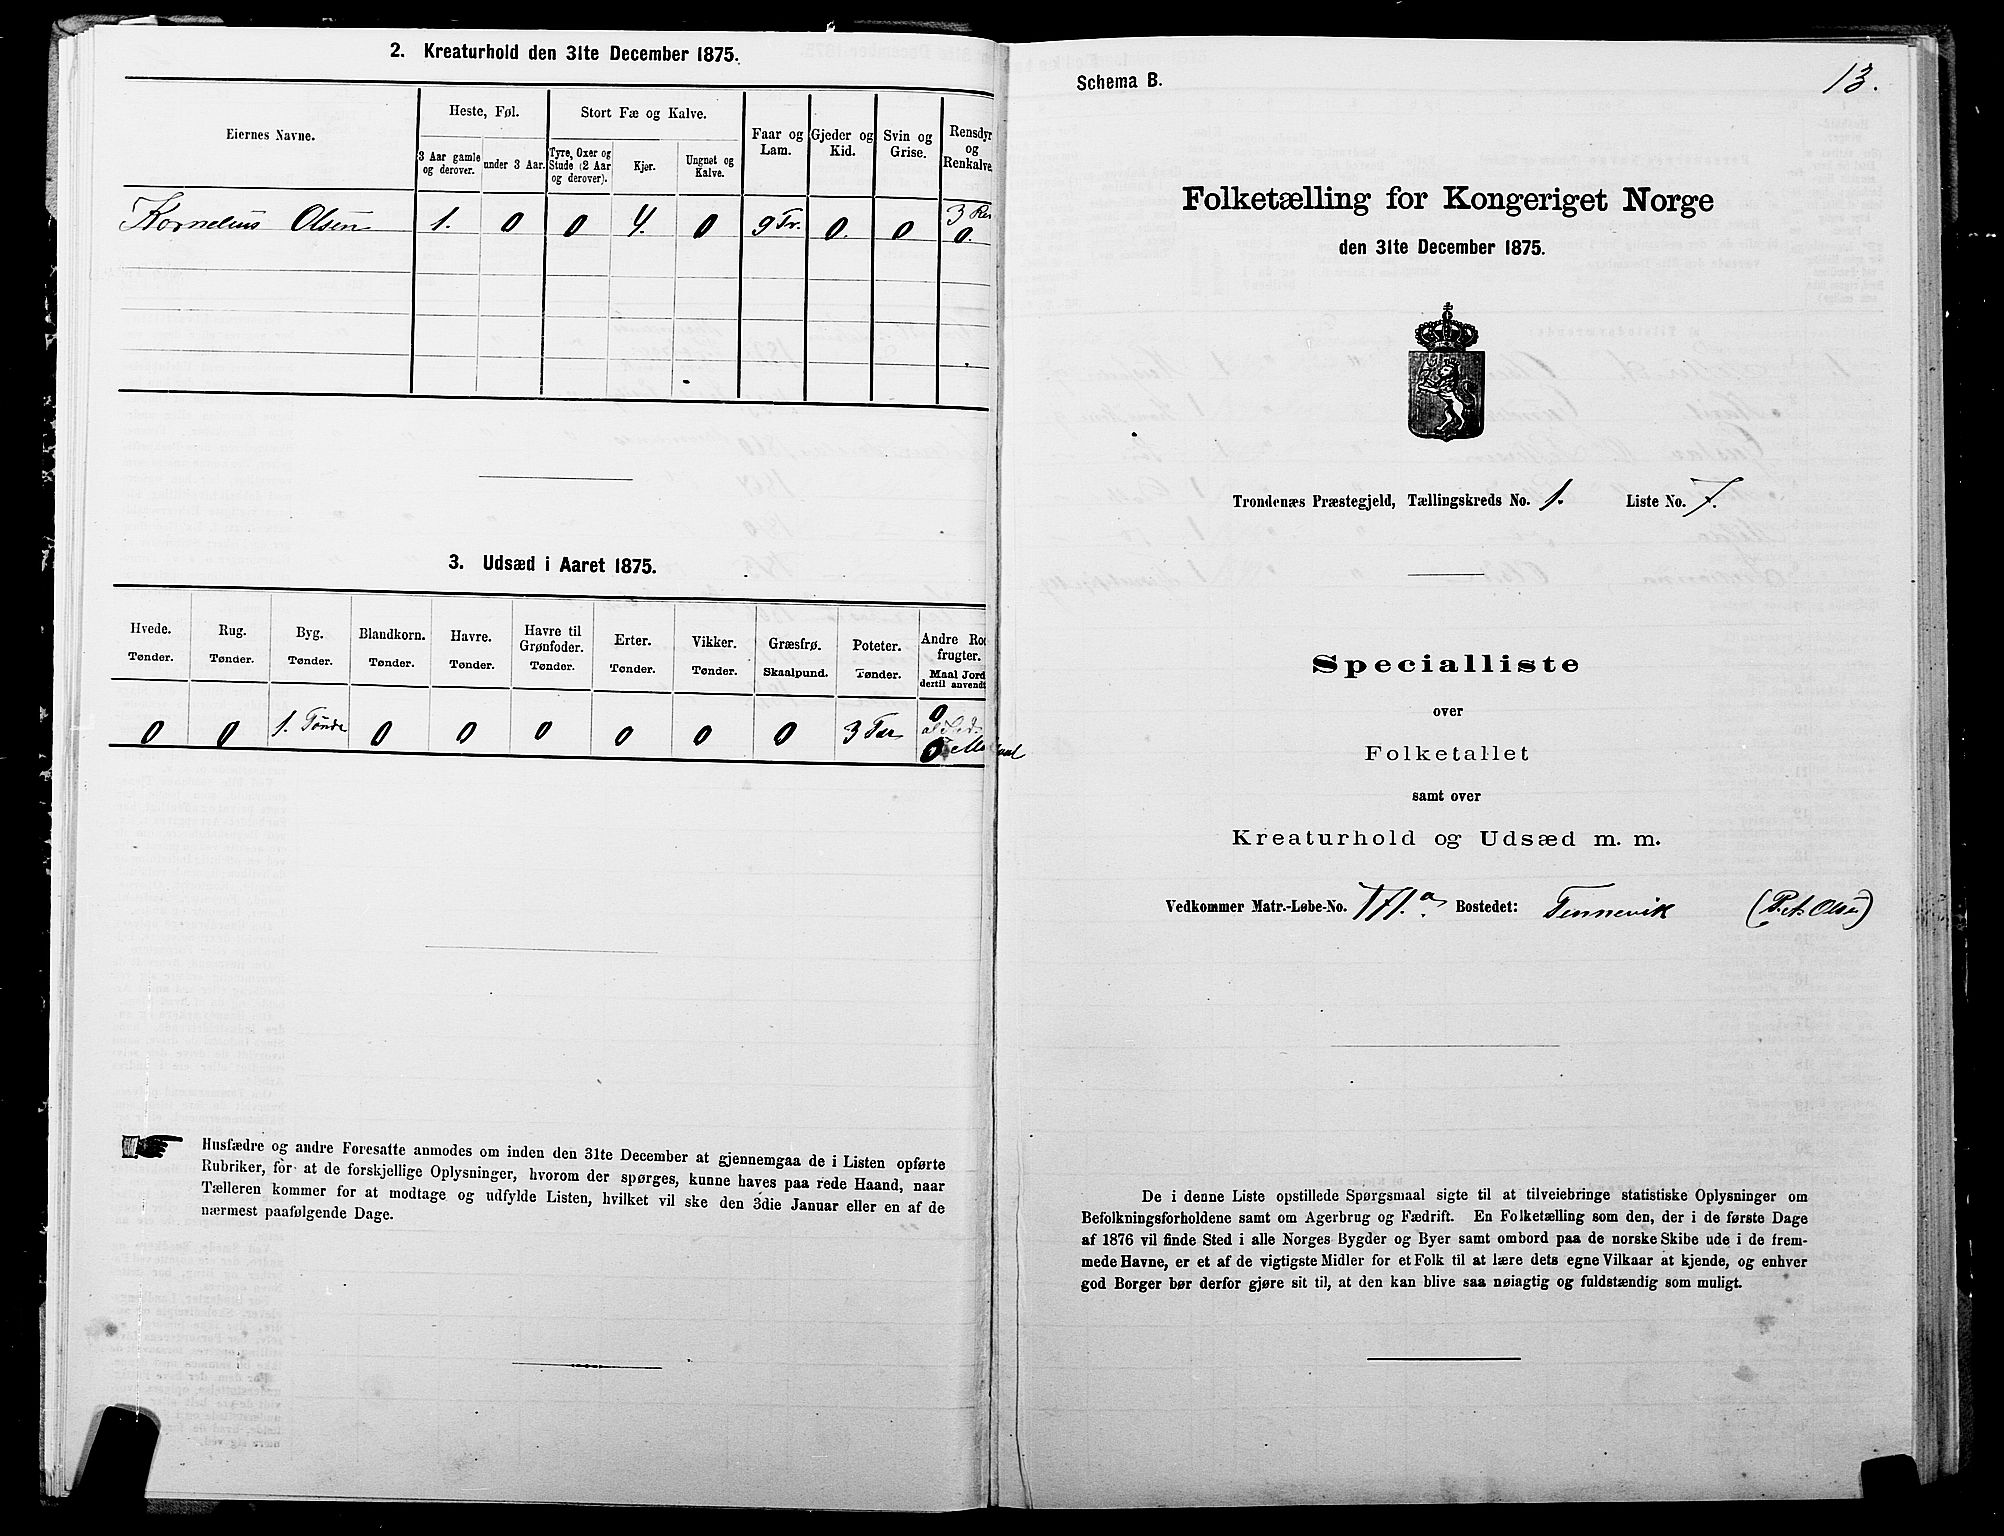 2. Kreaturhold den 31te December 1875.
Eiernes Navne.
Heste, Føl.
3 Aar gamle og derover.
under 3 Aar.
Stort Fæ og Kalve.
Tyre, Oxer og Stude (2 Aar og derover).
Kjør.
Ungnøt og Kalve.
Faar og Lam.
Gjeder og Kid.
Svin og Grise.
Rensdyr og Renkalve.
Kornelius Olsen 1. 0 0 4. 0 9 Fr. 0. 0 3 0.
3. Udsæd i Aaret 1875.
Hvede. Tønder.
Rug. Tønder.
Byg. Tønder.
Blandkorn. Tønder.
Havre. Tønder.
Havre til Grønfoder. Tønder.
Erter. Tønder.
Vikker. Tønder.
Græsfrø. Skaalpund.
Poteter. Tønder.
Andre Rod
frugter.
Maal Jord
dertil anvendt
0 0 1. Tønde 0 0 0 0 0 0 3 0
0
Husfædre og andre Foresatte anmodes om inden den 31te December at gjennemgaa de i Listen opførte
Rubriker, for at de forskjellige Oplysninger, hvorom der spørges, kunne haves paa rede Haand, naar
Tælleren kommer for at modtage og udfylde Listen, hvilket vil ske den 3die Januar eller en af de
nærmest paafølgende Dage.
Schema B.
13.
Folketælling for Kongeriget Norge
den 31te December 1875.
Trondenæs Præstegjeld, Tællingskreds No. 1. Liste No. 7.
Specialliste
over
Folketallet
samt over
Kreaturhold og Udsæd m. m.
Vedkommer Matr.-Løbe-No. 171.a Bostedet: Tennevik (P. A. Olsen)
De i denne Liste opstillede Spørgsmaal sigte til at tilveiebringe statistiske Oplysninger om
Befolkningsforholdene samt om Agerbrug og Fædrift. En Folketælling som den, der i de første Dage
af 1876 vil finde Sted i alle Norges Bygder og Byer samt ombord paa de norske Skibe ude i de frem-
mede Havne, er et af de vigtigste Midler for et Folk til at lære dets egne Vilkaar at kjende, og enhver
god Borger bør derfor gjøre sit til, at den kan blive saa nøiagtig og fuldstændig som muligt.